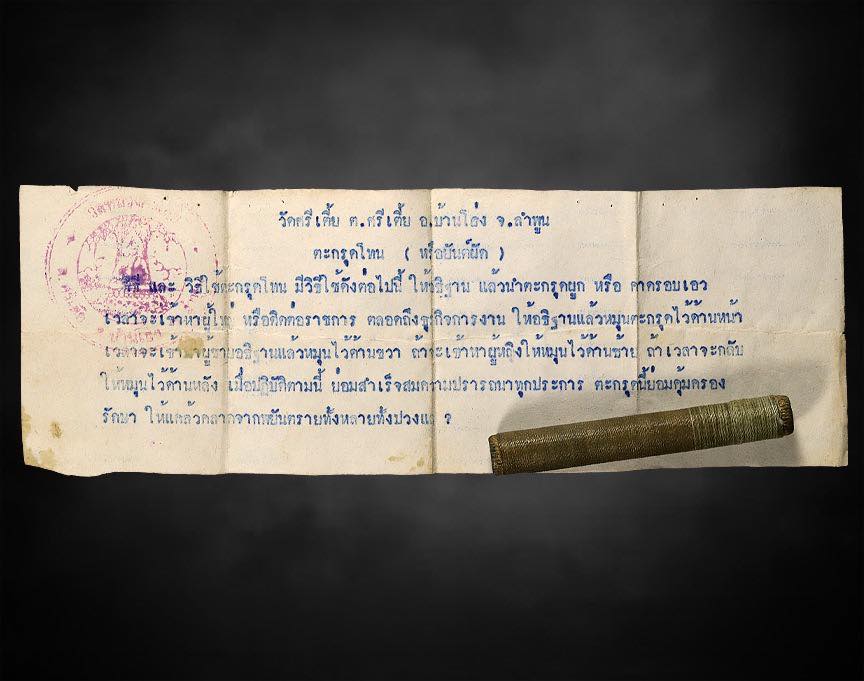 วัดศรีเตี้ย ต.ศรีเตี้ย อ.บ้านโฮ่ง จ.ลำพูน
ตะกรุดโทน ( หรือยันต์ผัด )
พิธี และ วิธีใช้ตะกรุดโทน มีวิธีใช้ดังต่อไปนี้ ให้อธิฐาน แล้วนำตะกรุดผูก หรือ คาดรอบเอว
เวลาจะเข้าหาผู้ใหญ่ หรือติดต่อราชการ ตลอดถึงธุรกิจการงาน ให้อธิฐานแล้วหมุนตะกรุดไว้ด้านหน้า
เวลาจะเข้าหาผู้ชายอธิฐานแล้วหมุนไว้ด้านขวา ถ้าจะเข้าหาผู้หญิงให้หมุนไว้ด้านซ้าย ถ้าเวลาจะกลับ
ให้หมุนไว้ด้านหลัง เมื่อปฏิบัติตามนี้ ย่อมสำเร็จสมความปรารถนาทุกประการ ตะกรุดนี้ย่อมคุ้มครอง
รักษา ให้แคล้วคลาดจากหยันตรายทั้งหลายทั้งปวงแล ฯ